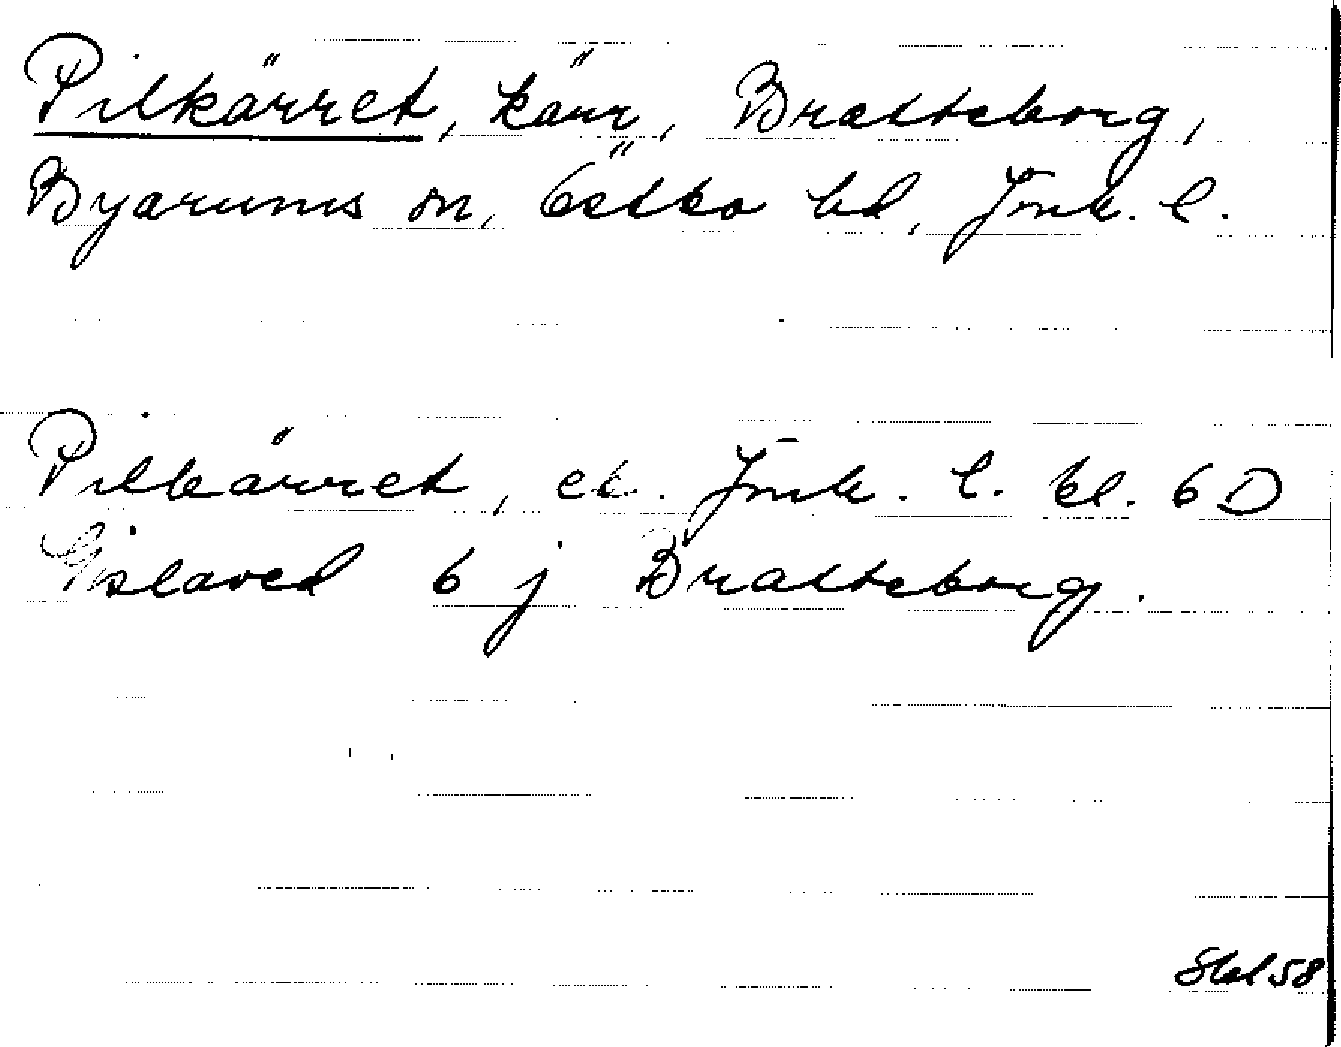 Pilkärret, kärr, Bratteborg,
Byarums sn, Östbo hd, Jönk. l.
Pilkärret, ek. Jönk. l. bl. 6 D
Gislaved 6 j Bratteborg.
Skl 58